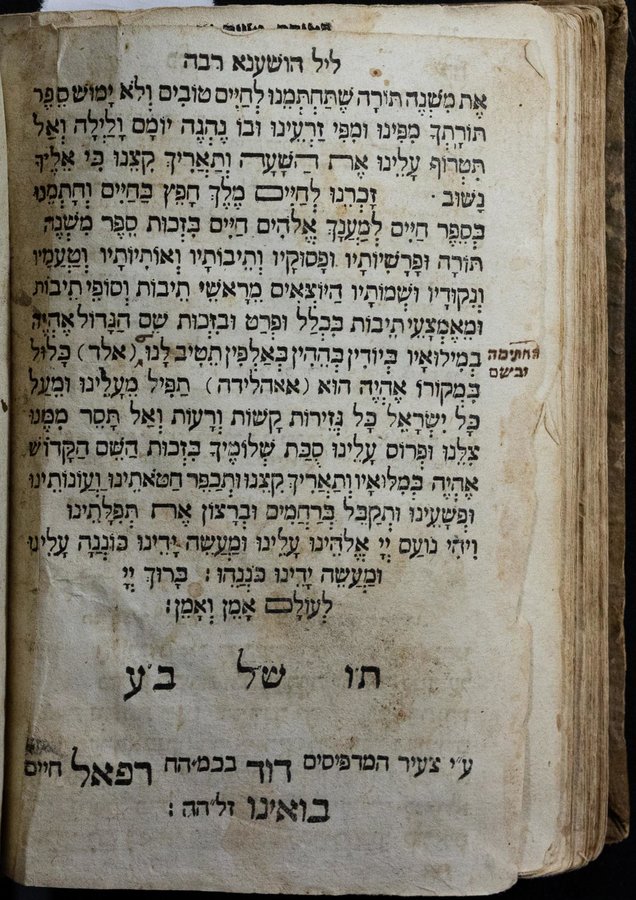 ליל הושענא רבה
אֶת מִשְׁנֶה תּוֹרָה שֶׁתַּחְתְּמֵנוּ לְחַיִּים טוֹבִים וְלֹא יָמוּשׁ סֵפֶר
תּוֹרָתְךָ מִפִּינוּ וּמִפִּי זַרְעֵינוּ וּבוֹ נֶהְגֶּה יוֹמָם וָלַיְלָה וְאַל
תִּטְרוֹף עָלֵינוּ אֶת הַשָּׁעָה וְתַאֲרִיךְ קִצֵּנוּ כִּי אֵלֶיךָ
נָשׁוּב . זָכְרֵנוּ לְחַיִּים מֶלֶךְ חָפֵץ בַּחַיִּים וְחָתְמֵנוּ
בְּסֵפֶר חַיִּים לְמַעֲנָךְ אֱלֹהִים חַיִּים בִּזְכוּת סֵפֶר מִשְׁנֶה
תּוֹרָה וּפָרָשִׁיּוֹתָיו וּפְסוּקָיו וְתֵיבוֹתָיו וְאוֹתִיּוֹתָיו וְטַעֲמָיו
וְנִקּוּדָיו וּשְׁמוֹתָיו הַיּוֹצְאִים מֵרָאשֵׁי תֵיבוֹת וְסוֹפֵי תֵיבוֹת
וּמֵאֶמְצָעֵי תֵיבוֹת בִּכְלָל וּפְרָט וּבִזְכוּת שֵׁם הַגָּדוֹל אֶהְיֶה
בְּמִילוּאָיו בְּיוּדִין בְּהֵהִין בְּאַלְפִין תֵּטִיב לָנוּ (אלד) כָּלוּל
בִּמְקוֹרוֹ אֶהְיֶה הוּא (אאהלידה) תַּפִּיל מֵעָלֵינוּ וּמֵעַל
כָּל יִשְׂרָאֵל כָּל גְּזֵירוֹת קָשׁוֹת וְרָעוֹת וְאַל תָּסֵר מִמֶּנּוּ
צִלֵּנוּ וּפְרוֹס עָלֵינוּ סֻכַּת שְׁלוֹמֶיךָ בִּזְכוּת הַשֵּׁם הַקָּדוֹשׁ
אֶהְיֶה בְּמִלּוּאָיו וְתַאֲרִיךְ קִצֵּנוּ וּתְכַפֵּר חַטֹּאתֵינוּ וַעֲוֹנוֹתֵינוּ
וּפְשָׁעֵינוּ וּתְקַבֵּל בְּרַחֲמִים וּבְרָצוֹן אֶת תְּפִלָּתֵינוּ
וִיהִי נוֹעַם יְיָ אֱלֹהֵינוּ עָלֵינוּ וּמַעֲשֵׂה יָדֵינוּ כּוֹנְנָה עָלֵינוּ
וּמַעֲשֵׂה יָדֵינוּ כּוֹנְנֵהוּ : בָּרוּךְ יְיָ
לְעוֹלָם אָמֵן וְאָמֵן :
החתימה
ובשם
תו של ב״ע
ע״י צעיר המדפיסים דוד בכמ״הח רפאל חיים
בואינו זל״הה :